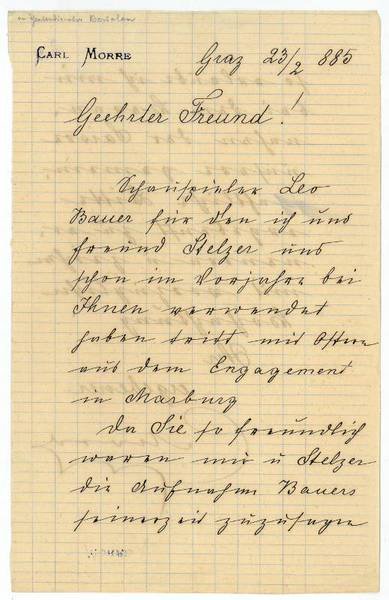 CARL MORRE
Graz 23/2 885
Geehrter Freund!
Schauspieler Leo
Bauer für den ich und
Freund Stelzer uns
schon im Vorjahre bei
Ihnen verwendet
haben tritt mit Ostern
aus dem Engagement
in Marburg
Da Sie so freundlich
waren mir u Stelzer
die Aufnahme Bauers
seinerzeit zuzusagen